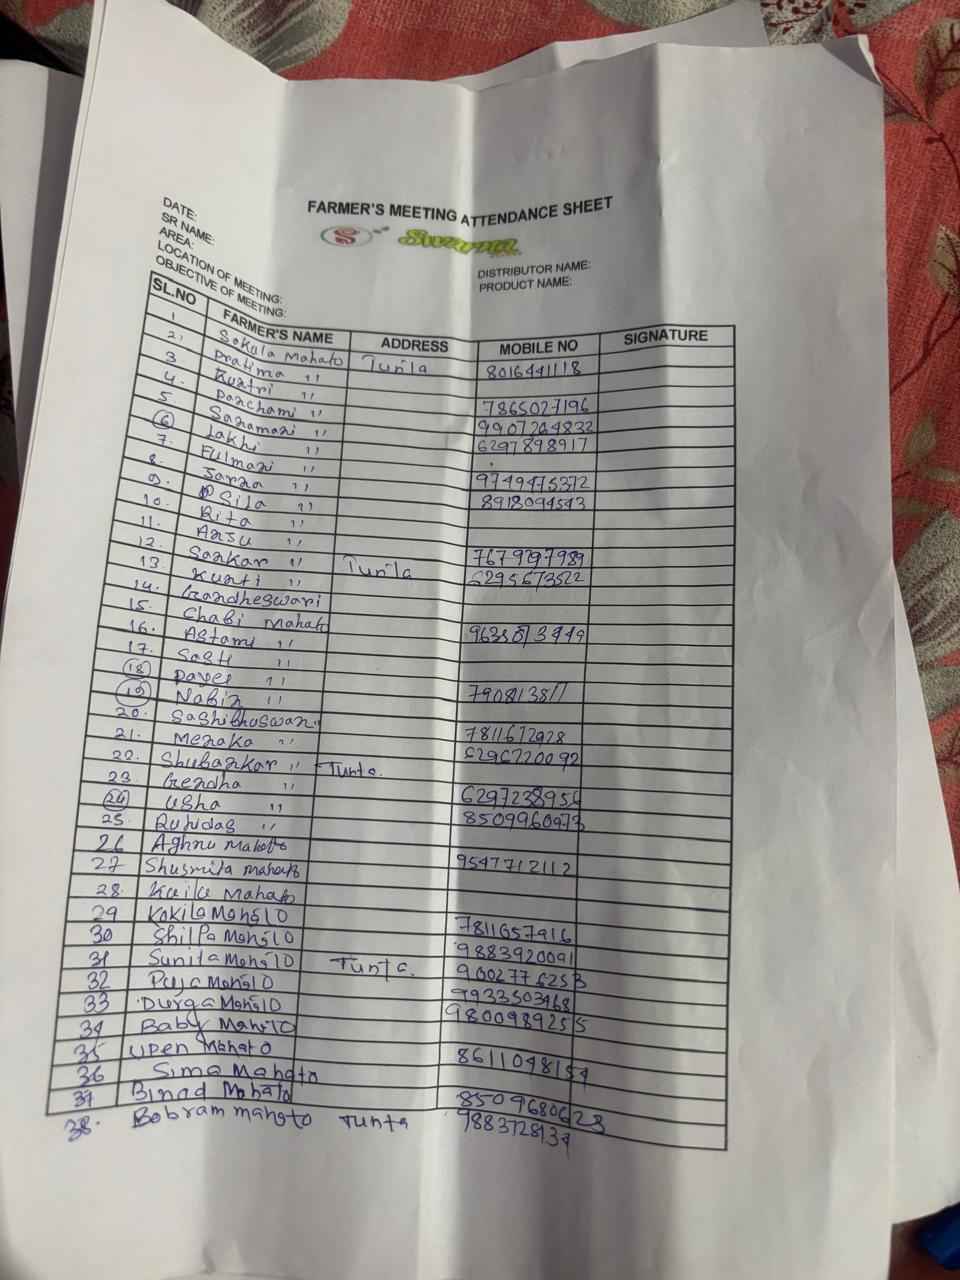 FARMER'S MEETING ATTENDANCE SHEET
S Swarna
DATE:
SR NAME:
AREA:
LOCATION OF MEETING:
OBJECTIVE OF MEETING:
DISTRIBUTOR NAME:
PRODUCT NAME:
SL.NO FARMER'S NAME ADDRESS MOBILE NO SIGNATURE
1 Sokula Mahato Tunta 8016441118
2. Pratima "
3. Kuntri " 7865027196
4. Panchami " 9907264832
5 Saramani " 6297898917
6 Lakhi "
7. Fulmani " 9749475372
8. Sarna " 8918094543
9. Sila "
10. Rita "
11. Ansu " 7679297989
12. Sankar " Tunta 6295673522
13. Kunti "
14. Gandheswari
15. Chabi Mahato 9635073449
16. Astami "
17. Sasti "
18 Payel " 790813811
19 Nabin "
20. Sashibhuswan " 7811672928
21. Menaka " 6296220092
22. Shubankar " Tunta.
23. Gendha " 6297238956
24 Usha " 8509960973
25. Ruhidas "
26 Aghnu Mahato
27 Shusmita Mahato 9547712112
28. Kailu Mahato
29 Kokila Mahato
30 Shilpa Mahato 7811657916
31 Sunita Mahato Tunta. 9883920091
32 Puja Mahato 9002776253
33 Durga Mahato 9933503468
34 Baby Mahato 9800989255
35 Upen Mahato
36 Sima Mahato 8611048154
37 Binod Mahato 8509680623
38. Bobram mahato Tunta 9883728134